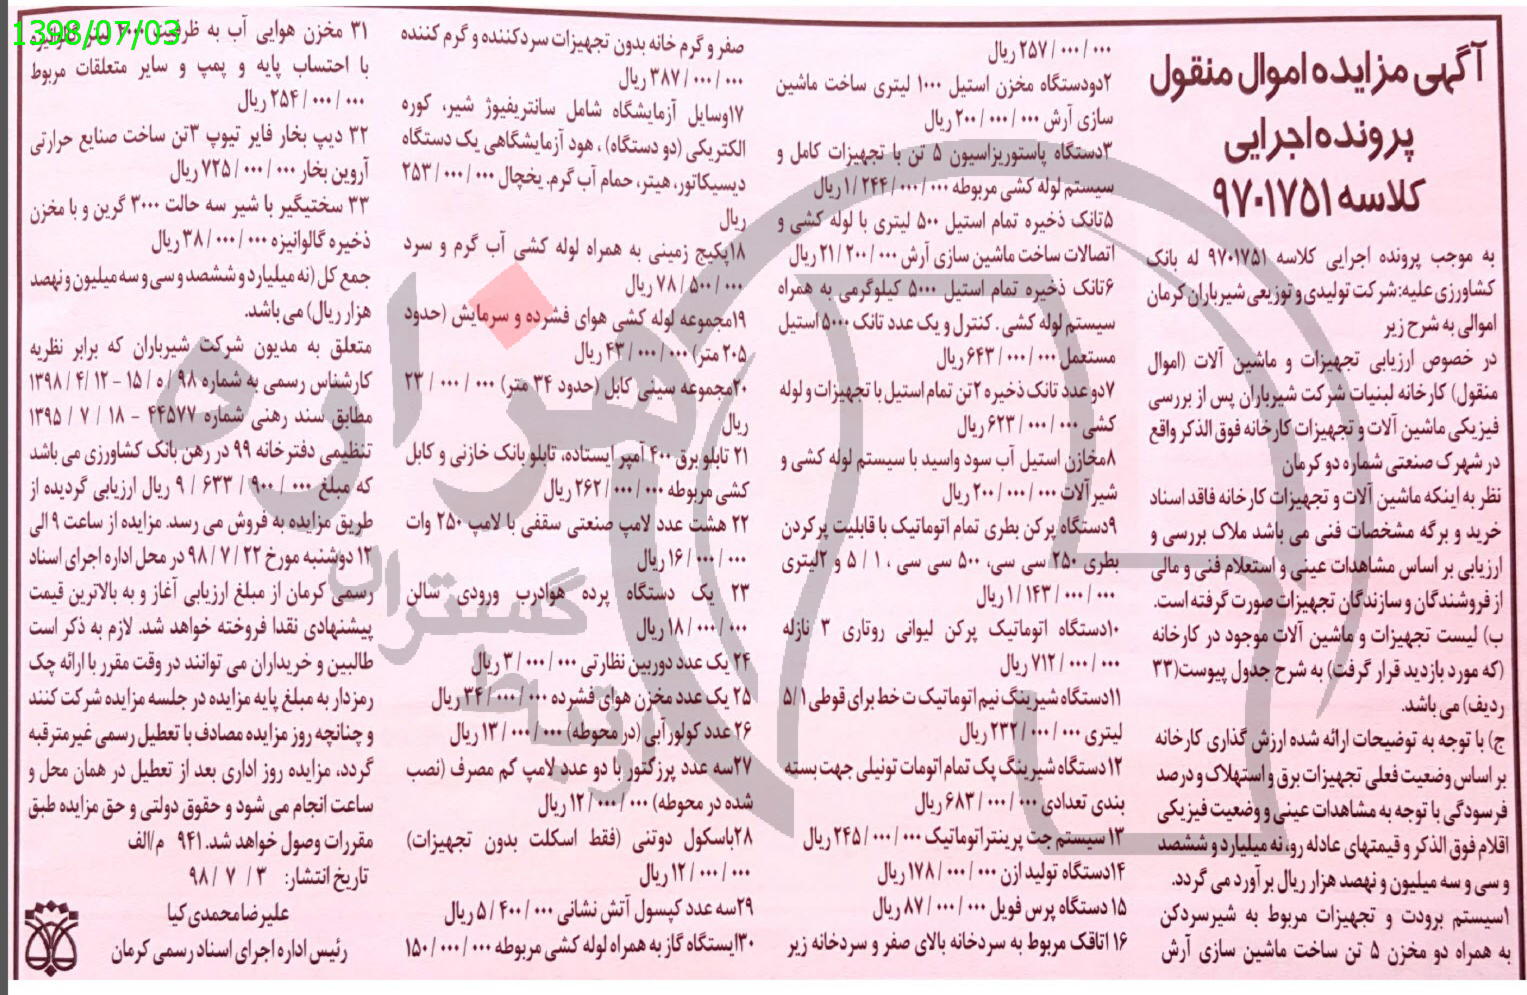 1398/07/03
آگهی مزایده اموال منقول
پرونده اجرایی
کلاسه ۹۷۰۱۷۵۱
به موجب پرونده اجرایی کلاسه ۹۷۰۱۷۵۱ له بانک
کشاورزی علیه: شرکت تولیدی و توزیعی شیرباران کرمان
اموالی به شرح زیر
در خصوص ارزیابی تجهیزات و ماشین آلات (اموال
منقول) کارخانه لبنیات شرکت شیرباران پس از بررسی
فیزیکی ماشین آلات و تجهیزات کارخانه فوق الذکر واقع
در شهرک صنعتی شماره دو کرمان
نظر به اینکه ماشین آلات و تجهیزات کارخانه فاقد اسناد
خرید و برگه مشخصات فنی می باشد ملاک بررسی و
ارزیابی بر اساس مشاهدات عینی و استعلام فنی و مالی
از فروشندگان و سازندگان تجهیزات صورت گرفته است.
ب) لیست تجهیزات و ماشین آلات موجود در کارخانه
(که مورد بازدید قرار گرفت) به شرح جدول پیوست(۳۳
ردیف) می باشد.
ج) با توجه به توضیحات ارائه شده ارزش گذاری کارخانه
بر اساس وضعیت فعلی تجهیزات برق و استهلاک و درصد
فرسودگی با توجه به مشاهدات عینی و وضعیت فیزیکی
اقلام فوق الذکر و قیمتهای عادله روز نه میلیارد و ششصد
و سی و سه میلیون و نهصد هزار ریال بر آورد می گردد.
۱سیستم برودت و تجهیزات مربوط به شیرسردکن
به همراه دو مخزن ۵ تن ساخت ماشین سازی آرش
۲۵۷/۰۰۰/۰۰۰ ریال
۲دودستگاه مخزن استیل ۱۰۰۰ لیتری ساخت ماشین
سازی آرش ۲۰۰/۰۰۰/۰۰۰ ریال
۳دستگاه پاستوریزاسیون ۵ تن با تجهیزات کامل و
سیستم لوله کشی مربوطه ۱/۲۴۴/۰۰۰/۰۰۰ ریال
۵تانک ذخیره تمام استیل ۵۰۰ لیتری با لوله کشی و
اتصالات ساخت ماشین سازی آرش ۲۱/۲۰۰/۰۰۰ ریال
۶تانک ذخیره تمام استیل ۵۰۰۰ کیلوگرمی به همراه
سیستم لوله کشی . کنترل و یک عدد تانک ۵۰۰۰ استیل
مستعمل ۶۴۳/۰۰۰/۰۰۰ ریال
۷دو عدد تانک ذخیره ۲تن تمام استیل با تجهیزات و لوله
کشی ۶۲۳/۰۰۰/۰۰۰ ریال
۸مخازن استیل آب سود واسید با سیستم لوله کشی و
شیرآلات ۲۰۰/۰۰۰/۰۰۰ ریال
۹دستگاه پرکن بطری تمام اتوماتیک با قابلیت پرکردن
بطری ۲۵۰ سی سی، ۵۰۰ سی سی ، ۱ / ۵ و ۲لیتری
۱/۱۴۳/۰۰۰/۰۰۰ ریال
۱۰دستگاه اتوماتیک پرکن لیوانی روتاری ۳ نازله
۷۱۲/۰۰۰/۰۰۰ ریال
۱۱دستگاه شیرینگ نیم اتوماتیک ت خط برای قوطی ۵/۱
لیتری ۲۳۲/۰۰۰/۰۰۰ ریال
۱۲دستگاه شیرینگ پک تمام اتومات تونیلی جهت بسته
بندی تعدادی ۶۸۳/۰۰۰/۰۰۰ ریال
۱۳ سیستم جت پرینتر اتوماتیک ۲۴۵/۰۰۰/۰۰۰ ریال
۱۴دستگاه تولید ازن ۱۷۸/۰۰۰/۰۰۰ ریال
۱۵ دستگاه پرس فویل ۸۷/۰۰۰/۰۰۰ ریال
۱۶ اتاقک مربوط به سردخانه بالای صفر و سردخانه زیر
صفر و گرم خانه بدون تجهیزات سردکننده و گرم کننده
۳۸۷/۰۰۰/۰۰۰ ریال
۱۷وسایل آزمایشگاه شامل سانتریفیوژ شیر، کوره
الکتریکی (دو دستگاه) ، هود آزمایشگاهی یک دستگاه
دیسیکاتور، هیتر، حمام آب گرم. یخچال ۲۵۳/۰۰۰/۰۰۰
ریال
۱۸پکیج زمینی به همراه لوله کشی آب گرم و سرد
۷۸/۵۰۰/۰۰۰ ریال
۱۹مجموعه لوله کشی هوای فشرده و سرمایش (حدود
۲۰۵ متر) ۴۳/۰۰۰/۰۰۰ ریال
۲۰مجموعه سینی کابل (حدود ۳۴ متر) ۲۳/۰۰۰/۰۰۰
ریال
۲۱ تابلو برق ۴۰۰ آمپر ایستاده، تابلو بانک خازنی و کابل
کشی مربوطه ۲۶۲/۰۰۰/۰۰۰ ریال
۲۲ هشت عدد لامپ صنعتی سقفی با لامپ ۲۵۰ وات
۱۶/۰۰۰/۰۰۰ ریال
۲۳ یک دستگاه پرده هوادرب ورودی شالن
۱۸/۰۰۰/۰۰۰ ریال
۲۴ یک عدد دوربین نظارتی ۳/۰۰۰/۰۰۰ ریال
۲۵ یک عدد مخزن هوای فشرده ۳۴/۰۰۰/۰۰۰ ریال
۲۶ عدد کولور آبی (در محوطه) ۱۳/۰۰۰/۰۰۰ ریال
۲۷سه عدد پرزکتور با دو عدد لامپ کم مصرف (نصب
شده در محوطه) ۱۲/۰۰۰/۰۰۰ ریال
۲۸باسکول دوتنی (فقط اسکلت بدون تجهیزات)
۱۲/۰۰۰/۰۰۰ ریال
۲۹سه عدد کپسول آتش نشانی ۵/۴۰۰/۰۰۰ ریال
۳۰ایستگاه گاز به همراه لوله کشی مربوطه ۱۵۰/۰۰۰/۰۰۰
۳۱ مخزن هوایی آب به ظرفیت ۲۰۰۰ لیتر گالوانیزه
با احتساب پایه و پمپ و سایر متعلقات مربوط
۲۵۴/۰۰۰/۰۰۰ ریال
۳۲ دیپ بخار فایر تیوپ ۳تن ساخت صنایع حرارتی
آروین بخار ۷۲۵/۰۰۰/۰۰۰ ریال
۳۳ سختیگیر با شیر سه حالت ۳۰۰۰ گرین و با مخزن
ذخیره گالوانیزه ۳۸/۰۰۰/۰۰۰ ریال
جمع کل (نه میلیارد و ششصد و سی و سه میلیون و نهصد
هزار ریال) می باشد.
متعلق به مدیون شرکت شیرباران که برابر نظریه
کارشناس رسمی به شماره ۹۸ / ه / ۱۵ – ۱۲ / ۴ / ۱۳۹۸
مطابق سند رهنی شماره ۴۴۵۷۷ – ۱۸ / ۷ / ۱۳۹۵
تنظیمی دفترخانه ۹۹ در رهن بانک کشاورزی می باشد
که مبلغ ۹/۶۳۳/۹۰۰/۰۰۰ ریال ارزیابی گردیده از
طریق مزایده به فروش می رسد. مزایده از ساعت ۹ الی
۱۲ دوشنبه مورخ ۲۲ / ۷ / ۹۸ در محل اداره اجرای اسناد
رسمی کرمان از مبلغ ارزیابی آغاز و به بالاترین قیمت
پیشنهادی نقدا فروخته خواهد شد. لازم به ذکر است
طالبین و خریداران می توانند در وقت مقرر با ارائه چک
رمزدار به مبلغ پایه مزایده در جلسه مزایده شرکت کنند
و چنانچه روز مزایده مصادف با تعطیل رسمی غیرمترقبه
گردد، مزایده روز اداری بعد از تعطیل در همان محل و
ساعت انجام می شود و حقوق دولتی و حق مزایده طبق
مقررات وصول خواهد شد. ۹۴۱ م/الف
تاریخ انتشار: ۳ / ۷ / ۹۸
علیرضا محمدی کیا
رئیس اداره اجرای اسناد رسمی کرمان
هزاره
گستران